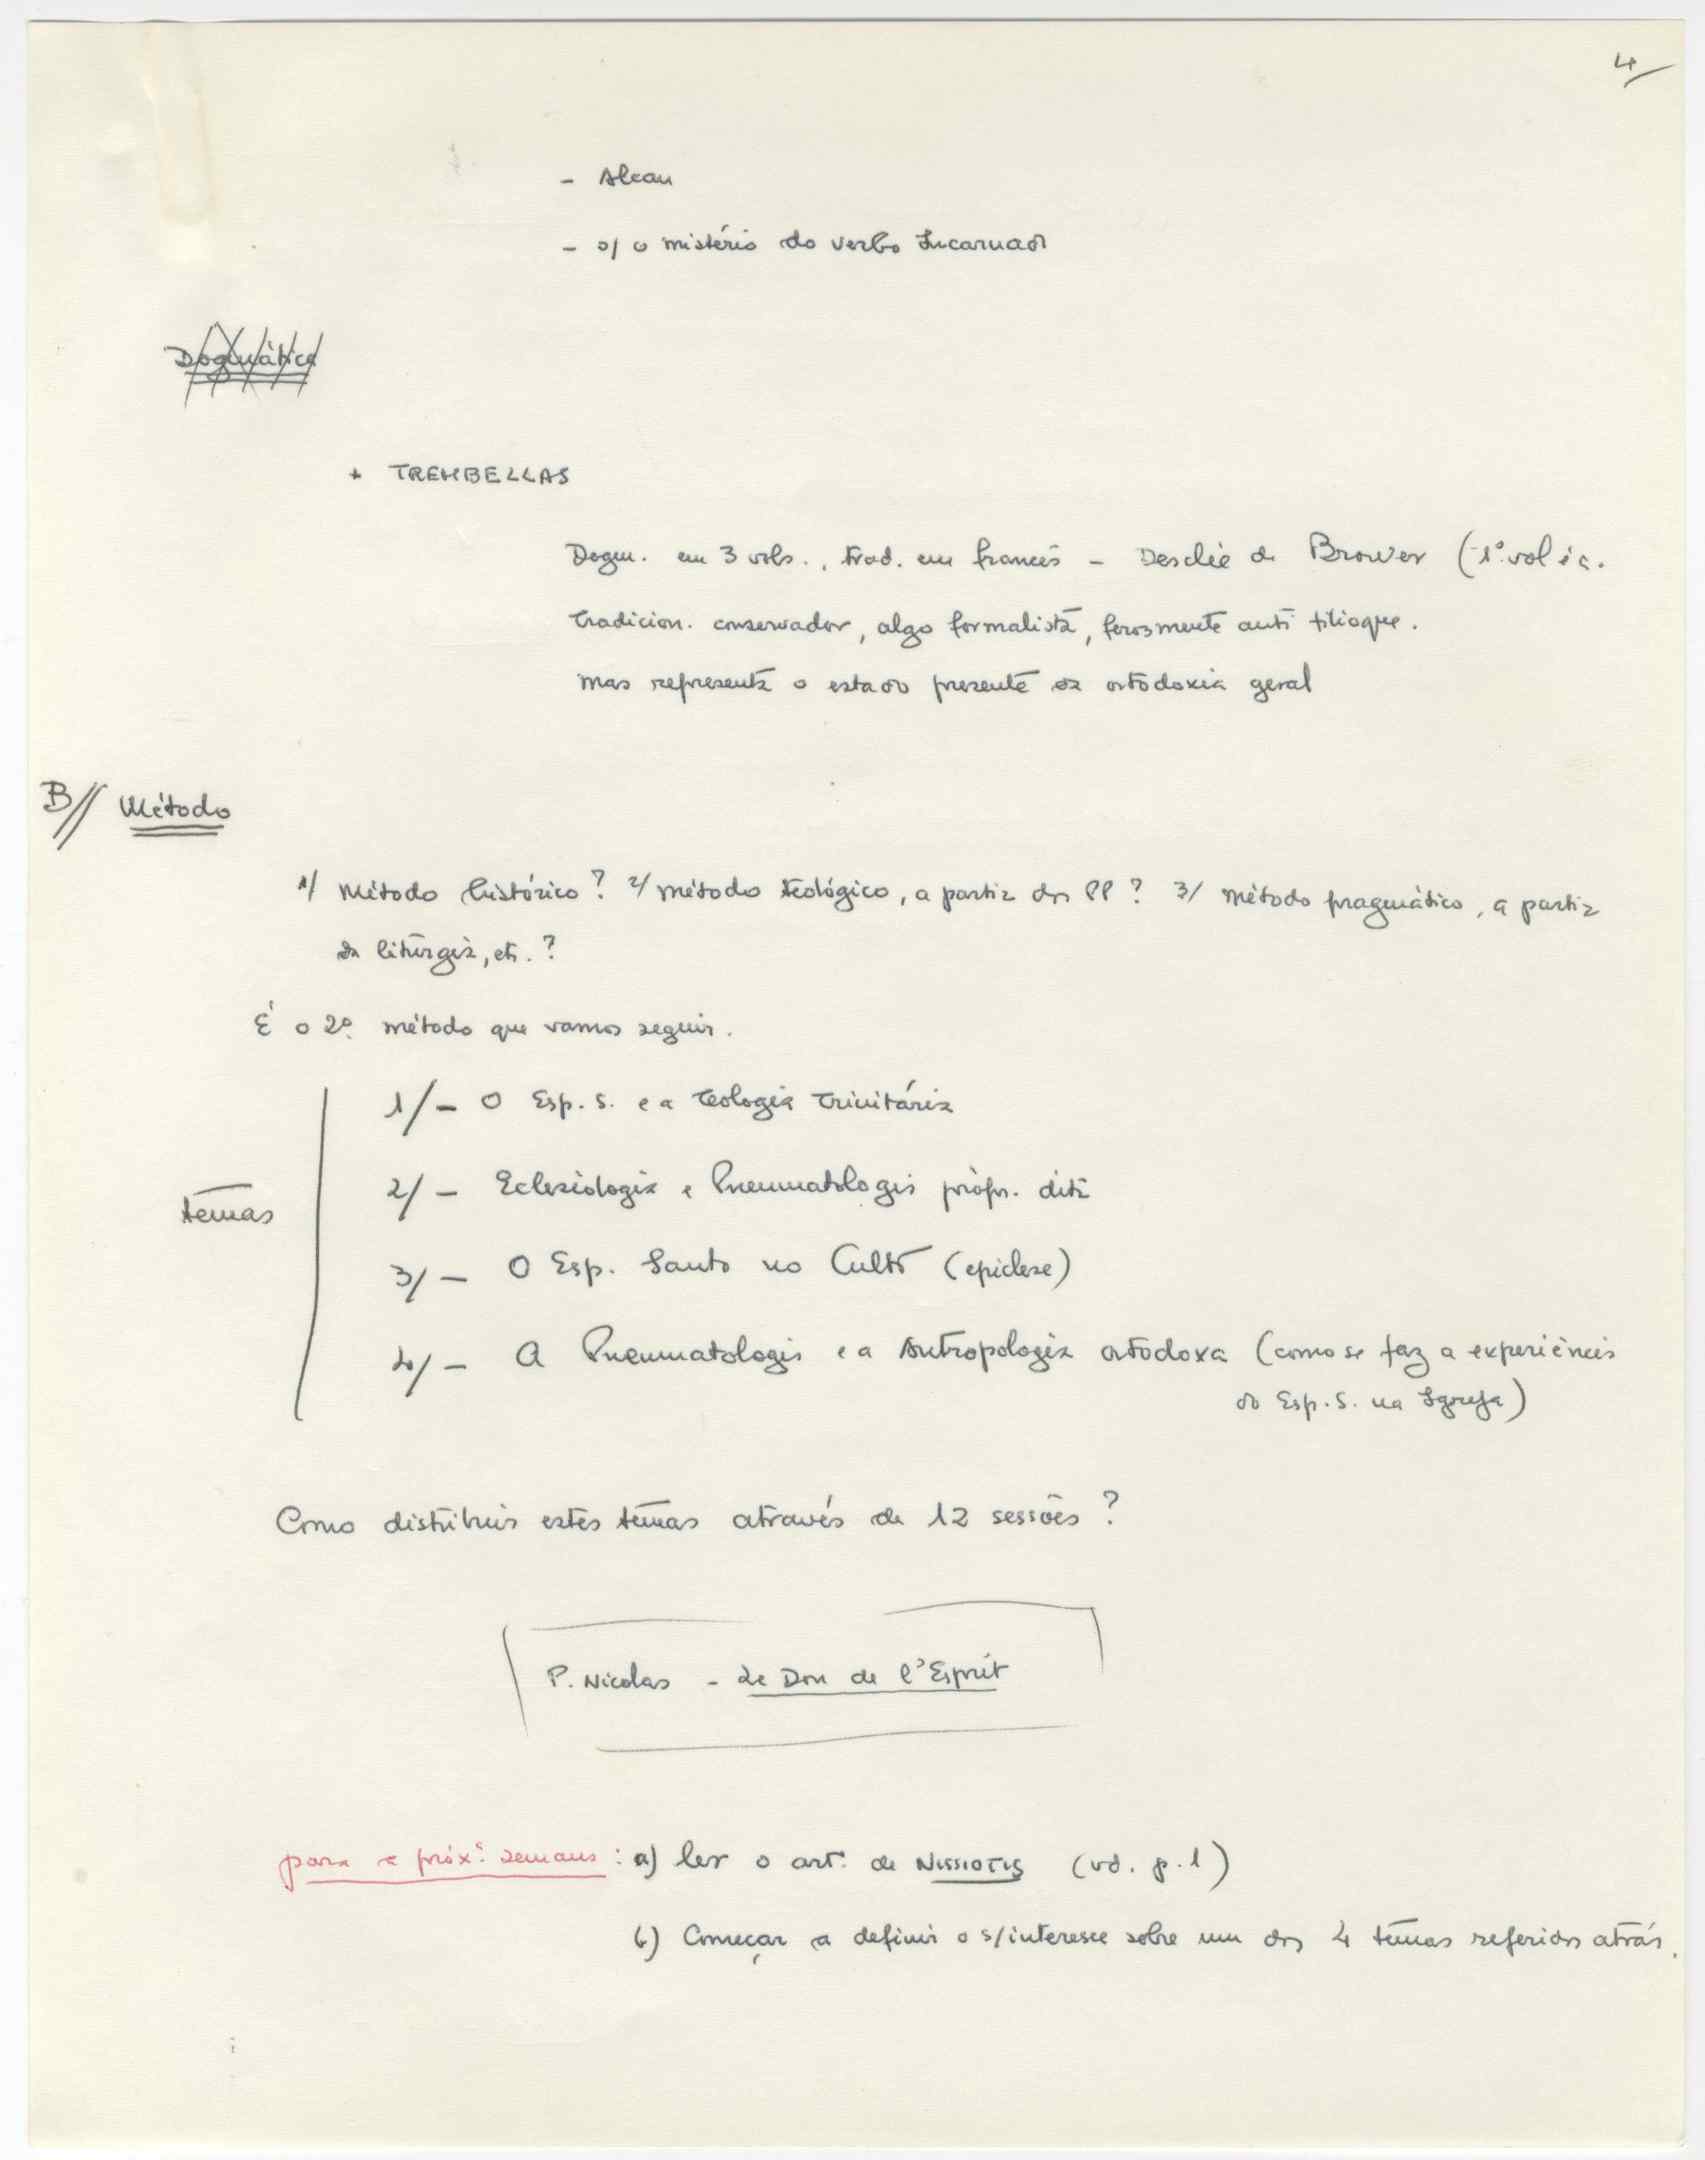 4/
- Alcan
- s/ o mistério do verbo Incarnado
Dogmática
+ TREMBELLAS
Dogm. em 3 vols., trad. em francês - Desclée de Brower (1º. vol
tradicion. conservador, algo formalista, ferozmente anti filioque.
mas representa o estado presente da ortodoxia geral
B// Método
1/ Método histórico? 2/ método teológico, a partir dos PP? 3/ método pragmático, a partir
da liturgia, etc.?
É o 2º. método que vamos seguir.
1/- O Esp. S. e a Teologia Trinitária
2/- Eclesiologia e Pneumatologia pròpr. dita
temas
3/- O Esp. Santo no Culto (epiclese)
4/- A Pneumatologia e a Antropologia ortodoxa (como se faz a experiência
do Esp. S. na Igreja)
Como distribuir estes temas através de 12 sessões?
P. Nicolas - Le Don de l'Esprit
para a próxª. semana: a) ler o artº. de NISSIOTIS (vd. p. 1)
b) Começar a definir o s/interesse sobre um dos 4 temas referidos atrás.